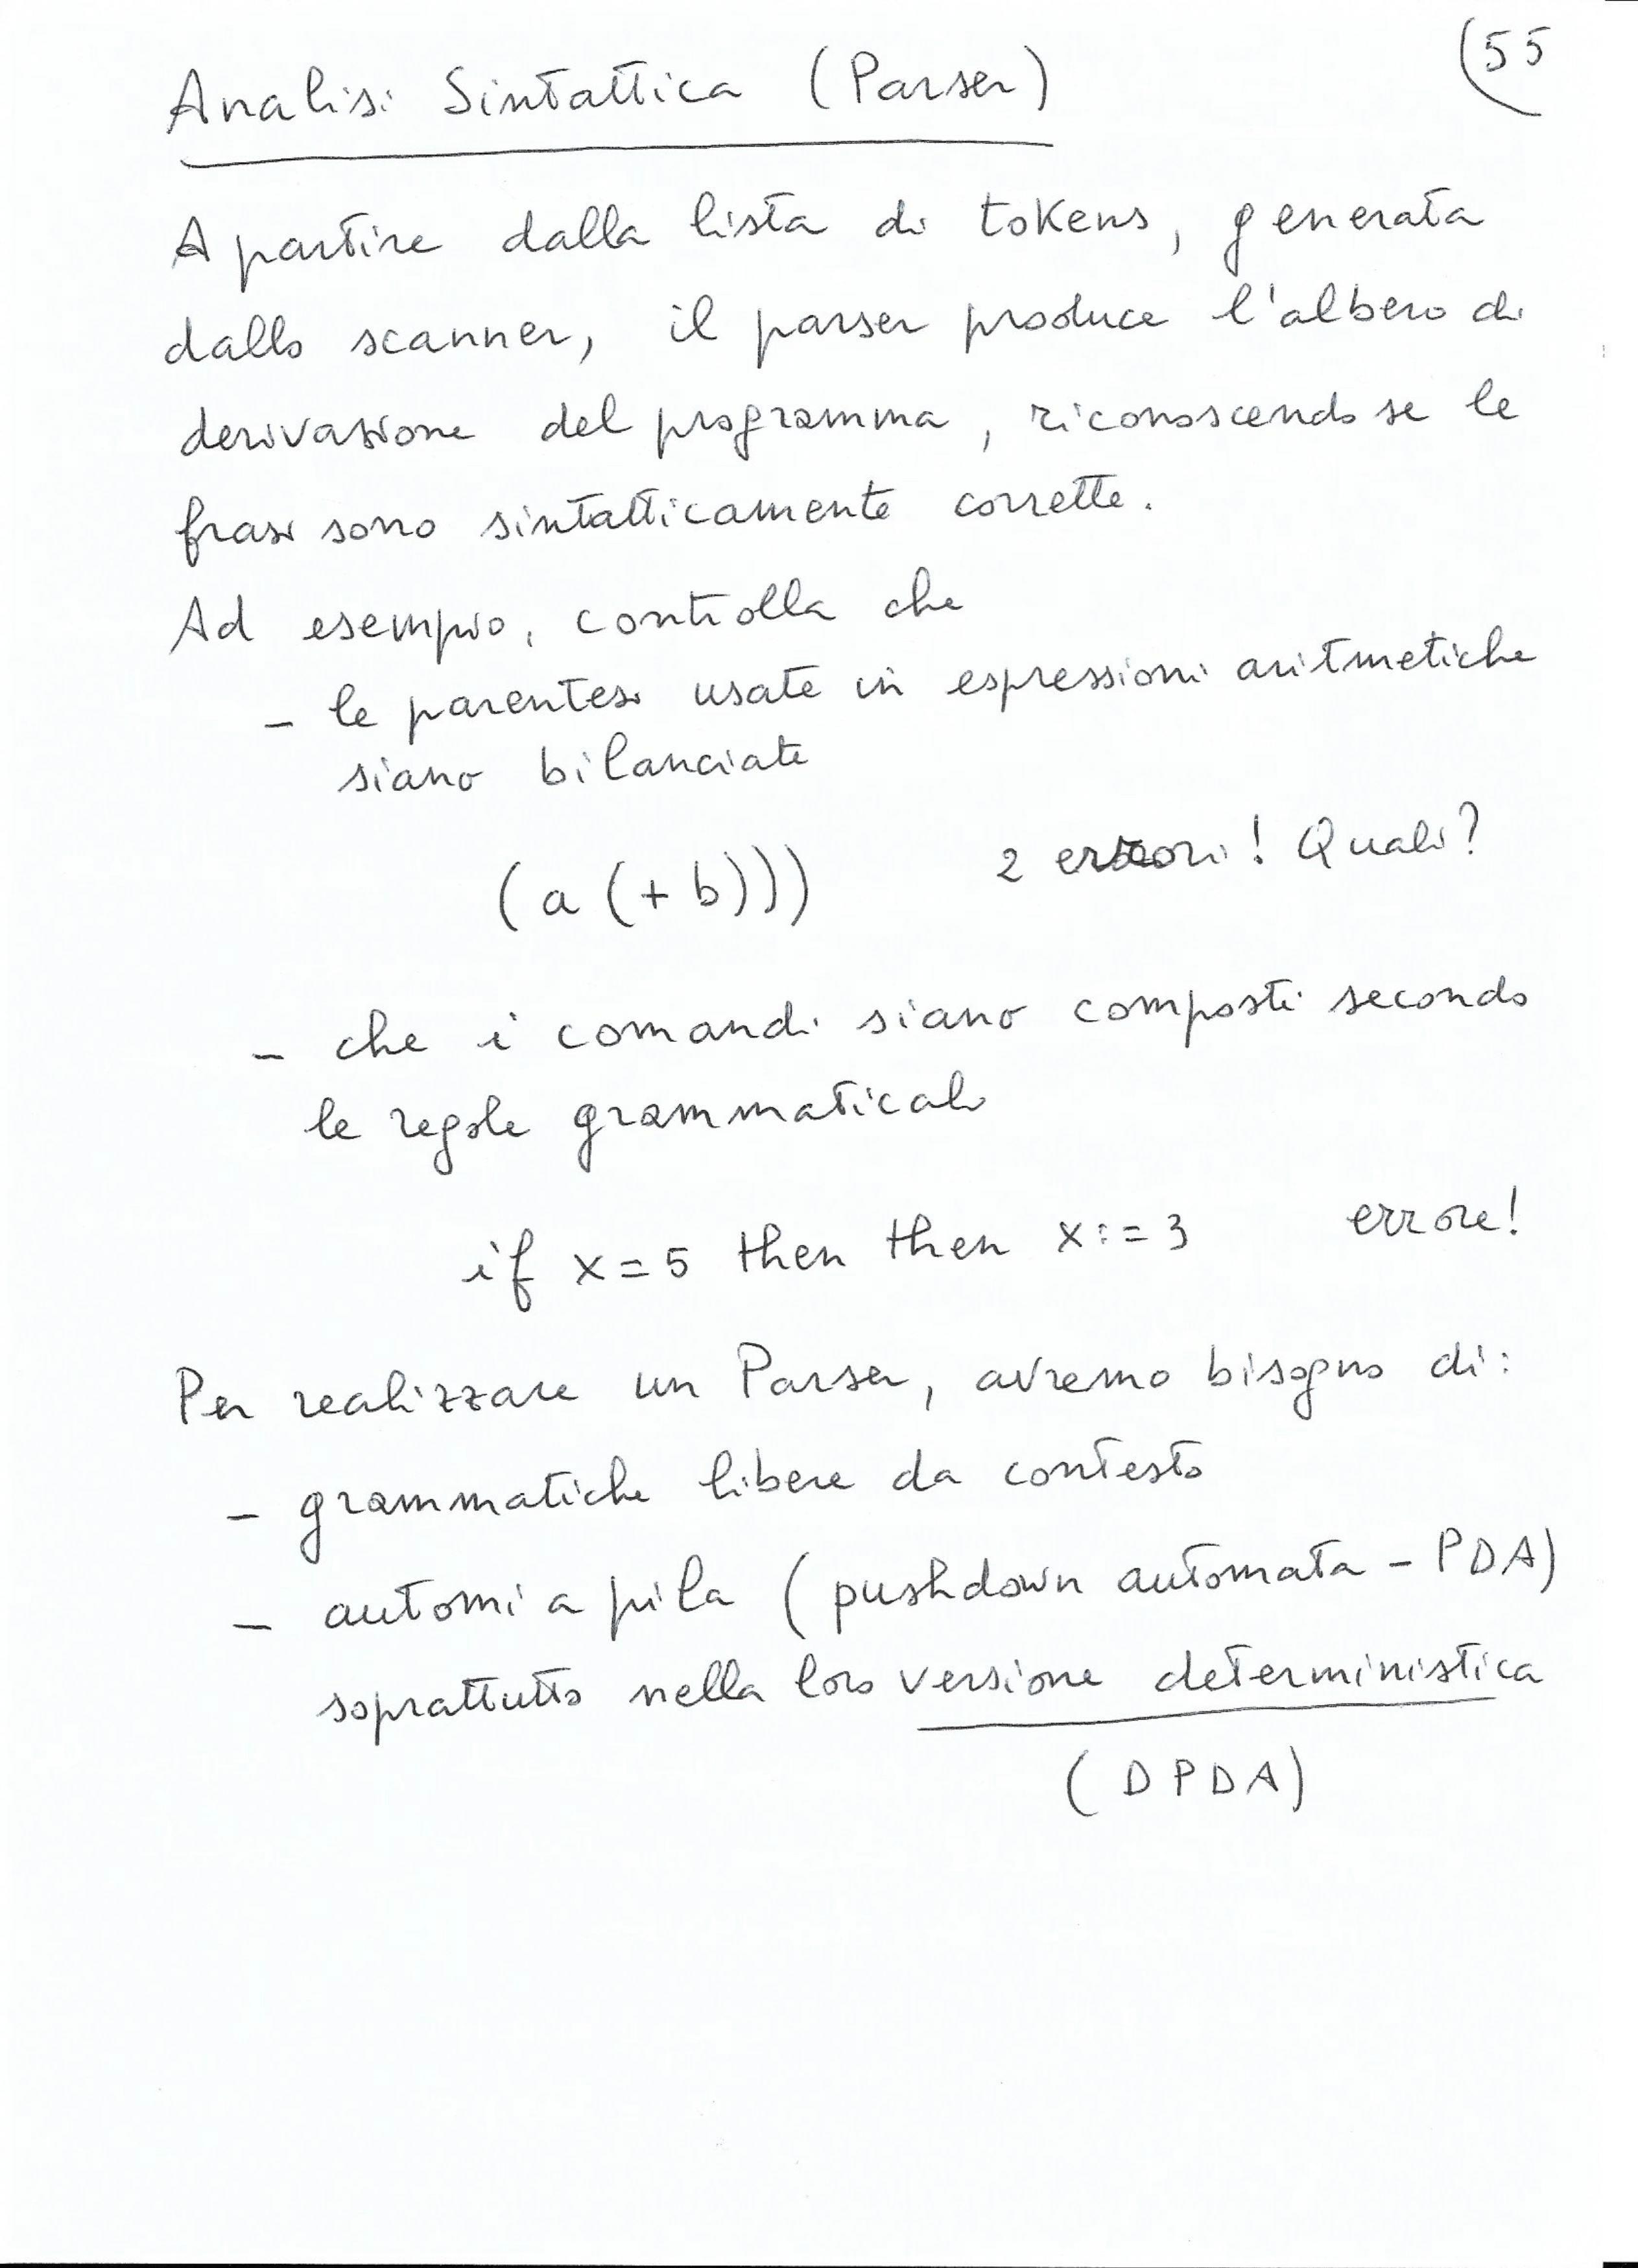 (55
Analisi Sintattica (Parser)
A partire dalla lista di tokens, generata
dallo scanner, il parser produce l'albero di
derivazione del programma, riconoscendo se le
frasi sono sintatticamente corrette.
Ad esempio, controlla che
- le parentesi usate in espressioni aritmetiche
siano bilanciate
(a (+ b))) 2 errori! Quali?
- che i comandi siano composti secondo
le regole grammaticali
if x = 5 then then x := 3 errore!
Per realizzare un Parser, avremo bisogno di:
- grammatiche libere da contesto
- automi a pila (pushdown automata - PDA)
soprattutto nella loro versione deterministica
(DPDA)